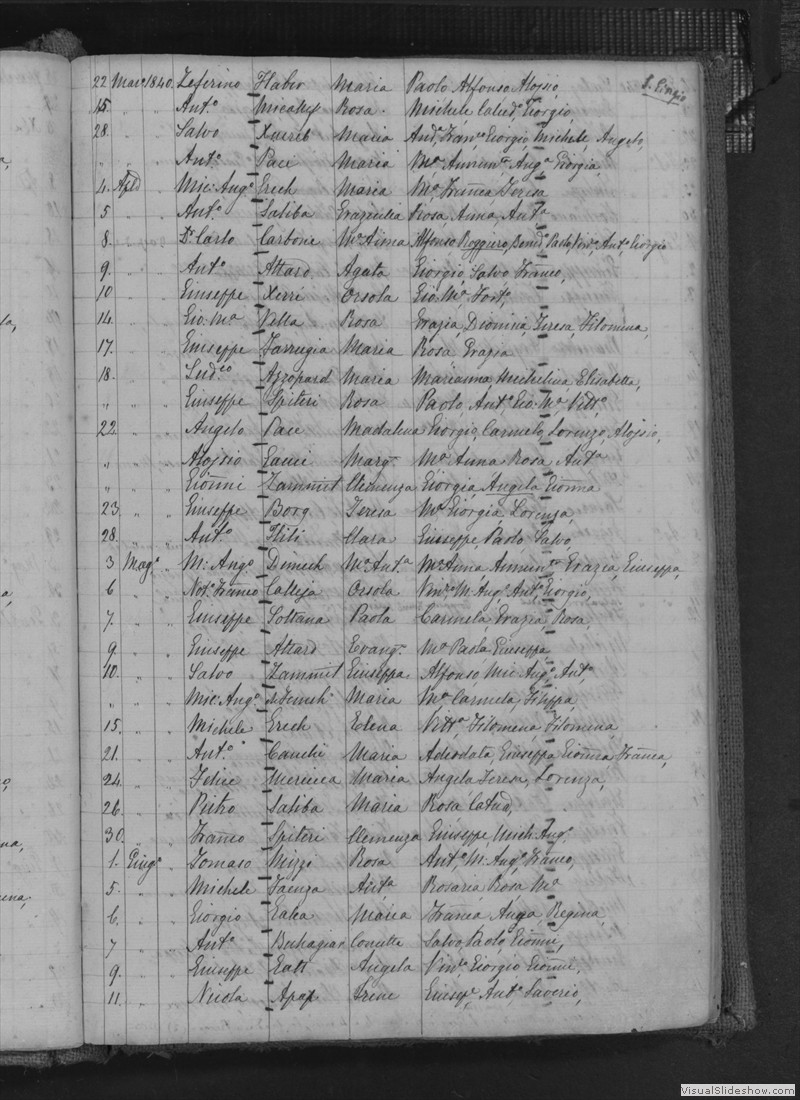 22 Mar. 1840. Zeferino Haber Maria Paolo Alfonso Alojsio, S. Giorgio
25 " " Ant.o Micallef Rosa. Michele Calud.o Giorgio,
28. " " Salvo Xuereb Maria And.a Fran.co Giorgio, Michele, Angelo,
" " " Ant.o Pace Maria M.a Annun.ta Ang.a Giorgia,
4. Aple " Mic: Ang.o Grech Maria M.a Franca Teresa
5 " " Ant.o Saliba Graziulla Rosa, Anna, Ant.a
8. " " Dr. Carlo Carbone M.a Anna Alfonso, Ruggiero, Bened.o Paolo Vinc.o Ant.o Giorgio
9. " " Ant.o Attard Agata Giorgio, Salvo Franco,
10 " " Giuseppe Xerri Orsola Gio. M.a Fort.o
14. " " Gio. M.a Vella Rosa Grazia, Dionisia, Teresa, Filomina,
17. " " Giuseppe Farrugia Maria Rosa Grazia
18. " " Lud.co Azzopard Maria Marianna, Michelina Elisabetta,
" " " Giuseppe Spiteri Rosa Paolo, Ant.o Gio. M.a Vitt.o
22. " " Angelo Pace Madalena Giorgio, Carmelo, Lorenzo, Alojsio,
" " " Alojsio Gauci Marg.a M.a Anna Rosa Ant.a
" " " Gionni Zammit Clemenza Giorgia, Angela Gionna
23. " " Giuseppe Borg Teresa M.a Giorgia Lorenza,
28. " " Ant.o Fliti Clara Giuseppe, Paolo Salvo,
3 Mag.o " M: Ang.o Dimech M.a Ant.a M.a Anna Annun.ta Grazia, Giuseppa,
6 " " Not.o Franco Calleja Orsola Vinc.o M: Ang.o Ant.o Giorgio,
7. " " Giuseppe Soltana Paola Carmela, Grazia, Rosa,
9. " " Giuseppe Attard Evang.a M.a Paola Giuseppa
10. " " Salvo Zammit Giuseppa Alfonso Mic: Ang.o Ant.o
" " " Mic: Ang.o Maria M.a Carmela, Filippa
15. " " Michele Grech Elena Vitt.a Filomena, Filomina
21. " " Ant.o Cauchi Maria Adeodata, Giuseppa Gionna Franca,
24. " " Felice Mercieca Maria Angela Teresa, Lorenza,
26. " " Pietro Saliba Maria Rosa Calud.
30. " " Franco Spiteri Clemenza Giuseppe, Mich: Ang.o
1. Giug.o " Tomaso Mizzi Rosa Ant.o M: Ang.o Franco,
5. " " Michele Faenza Ant.a Rosaria Rosa M.a
6. " " Giorgio Galea Maria Franca Anga Regina,
7 " " Ant.o Buhagiar Concetta Salvo, Paolo, Gionni,
9. " " Giuseppe Gatt Angela Vin.co Giorgio Gionni,
11. " " Nicola Apap Irene Giusep.e Ant.o Saverio,
VisualSlideshow.com